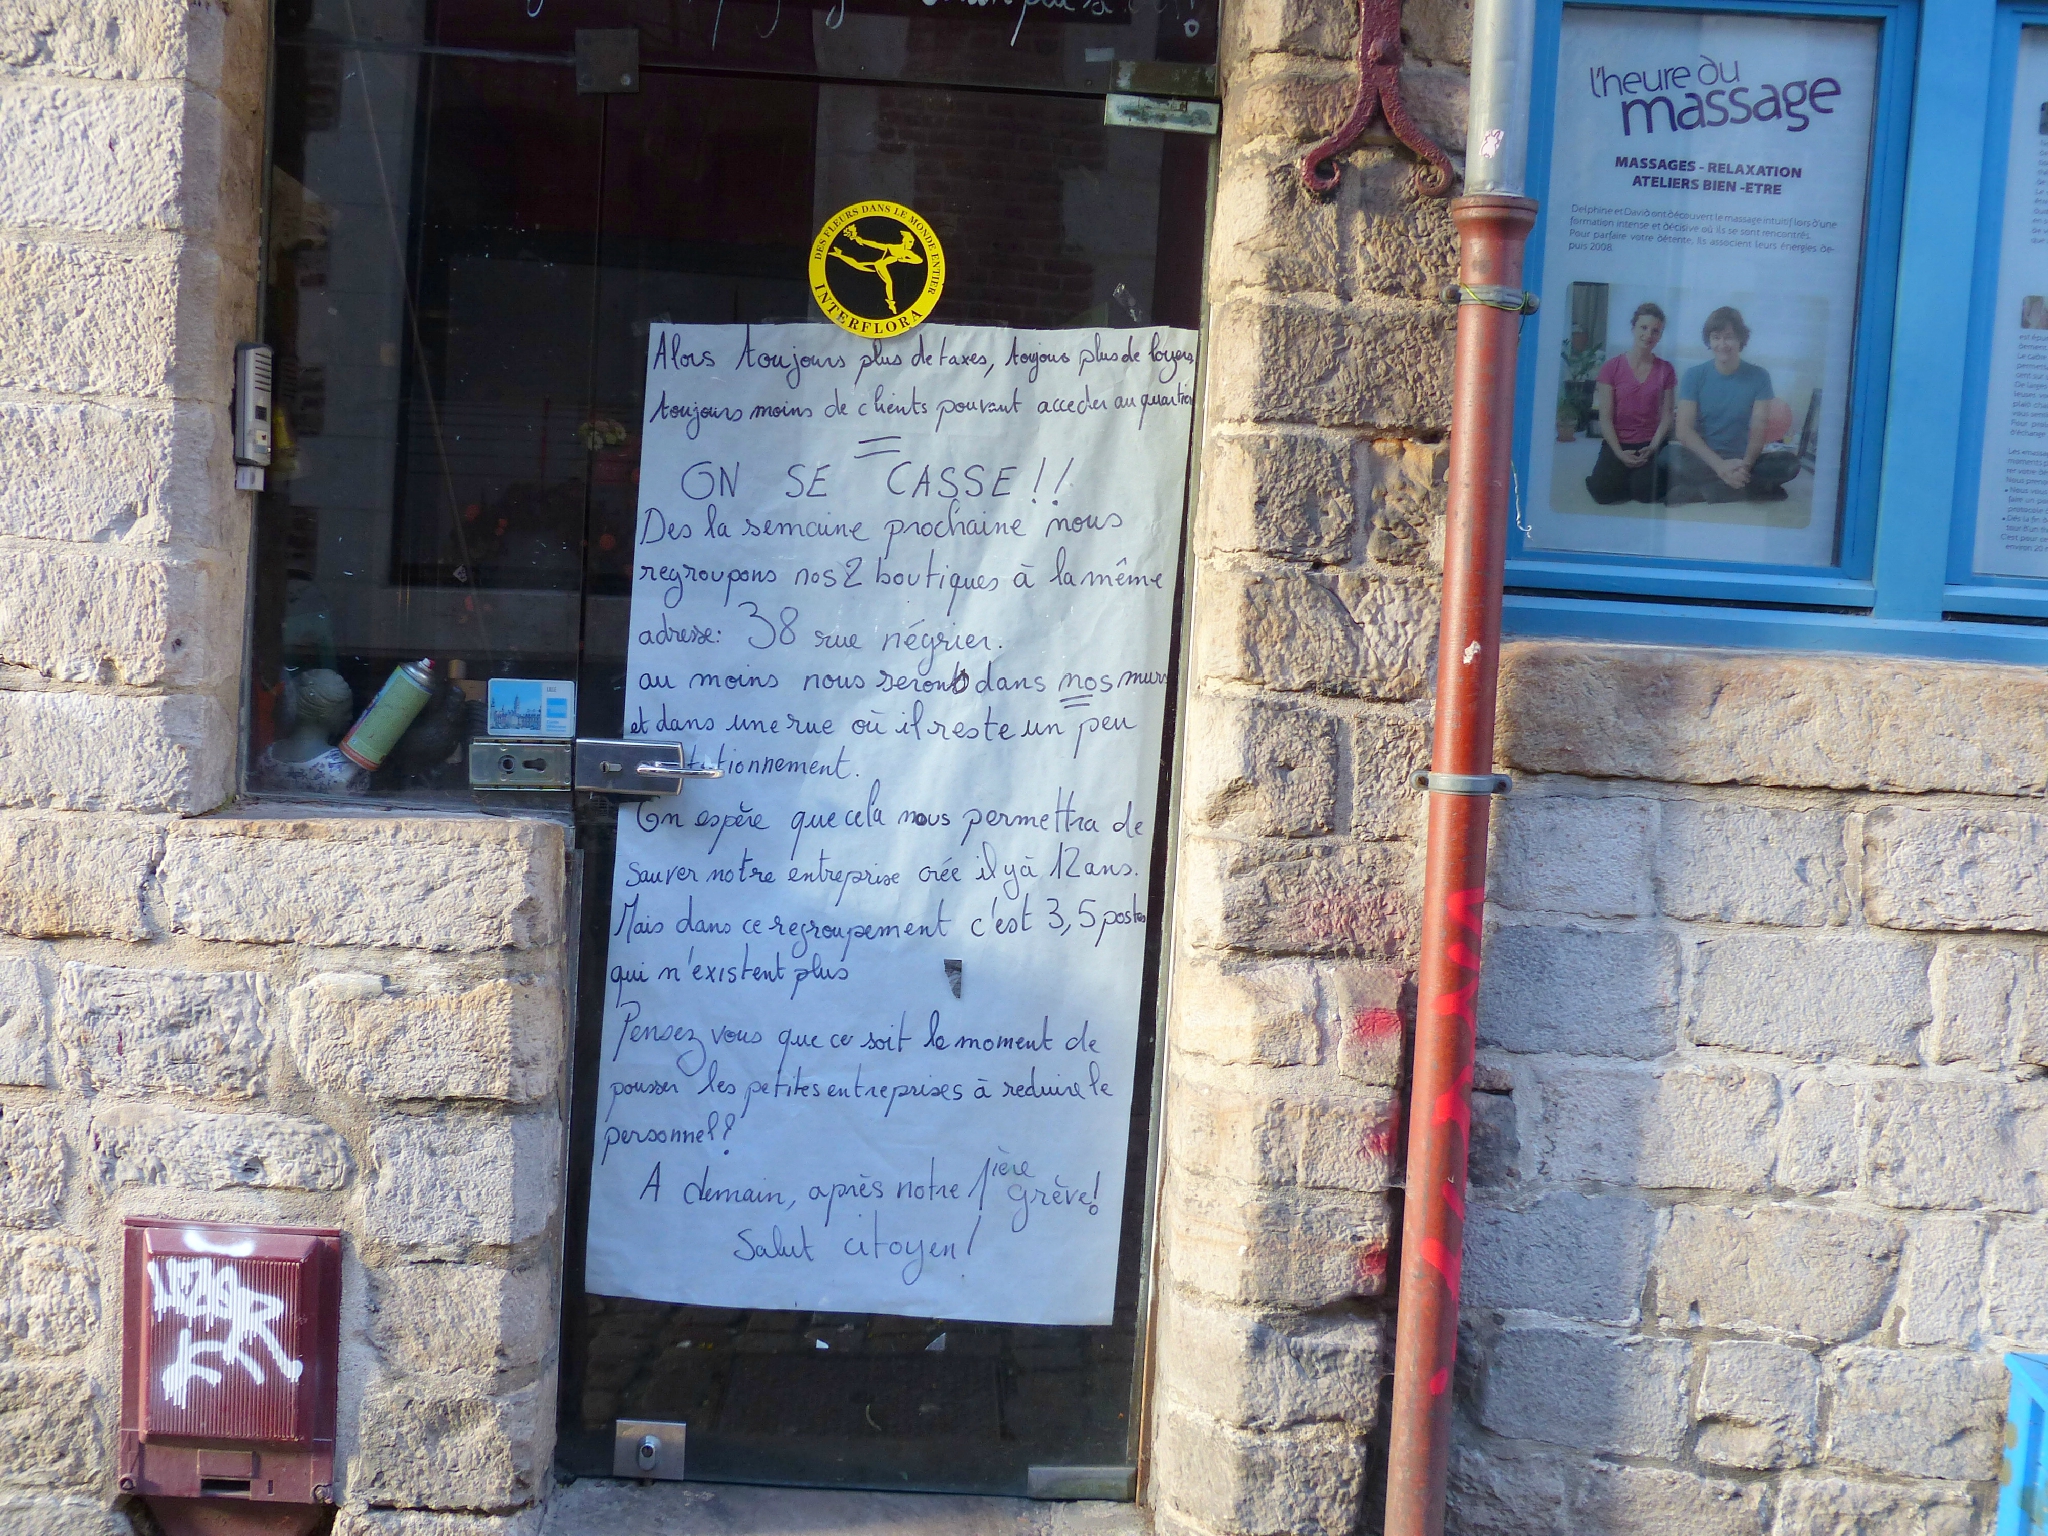 DES FLEURS DANS LE MONDE ENTIER
INTERFLORA
Alors toujours plus de taxes, toujous plus de loyers,
toujours moins de clients pouvant acceder au quartier
=
ON SE CASSE!!
Des la semaine prochaine nous
regroupons nos 2 boutiques à la même
adresse: 38 rue négrier.
au moins nous serons dans nos murs
et dans une rue où il reste un peu
tationnement.
On espère que cela nous permettra de
sauver notre entreprise crée il y à 12 ans.
Mais dans ce regroupement c'est 3,5 postes
qui n'existent plus
Pensez vous que ce soit le moment de
pousser les petites entreprises à reduire le
personnel?
A demain, après notre 1ière grève!
Salut citoyen!
l'heure du
massage
MASSAGES - RELAXATION
ATELIERS BIEN -ETRE
Delphine et David ont découvert le massage intuitif lors d'une
formation intense et décisive où ils se sont rencontrés.
Pour parfaire votre détente, ils associent leurs énergies de-
puis 2008.